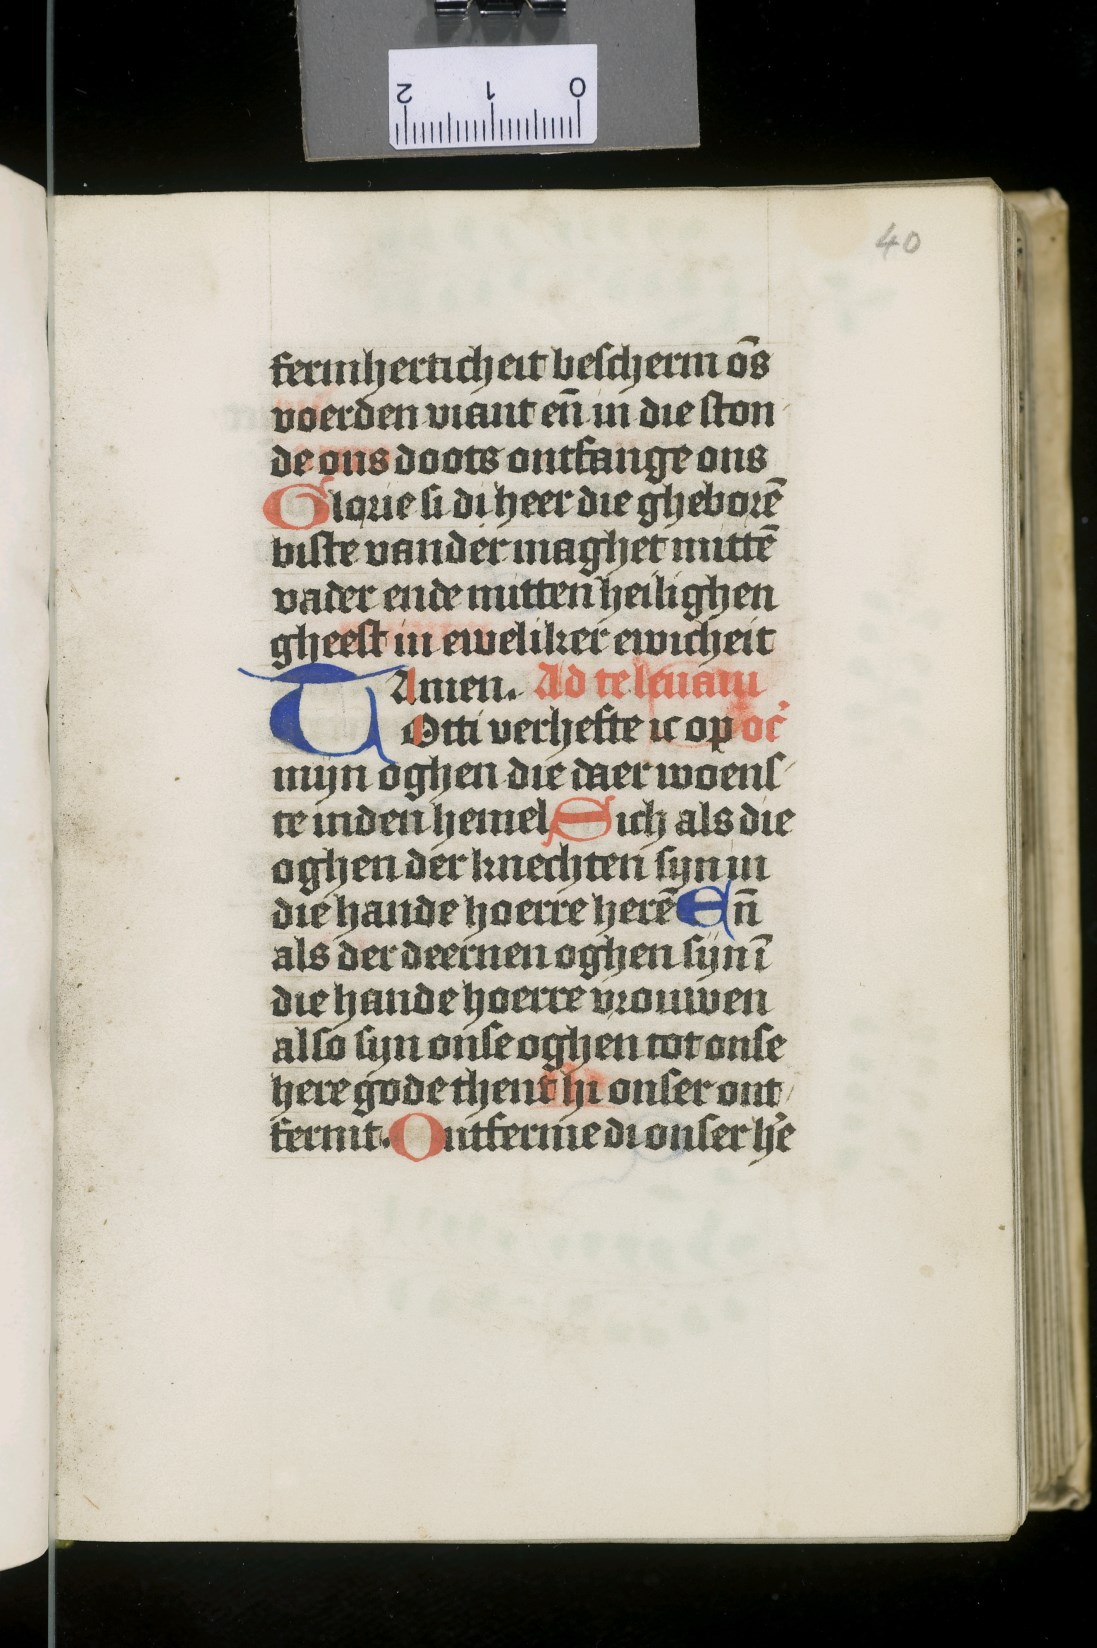 40
fermherticheit bescherm ōs
voerden viant en̄ in die ston
de ons doots ontfange ons
Glorie si di heer die gheborē
biste vander maghet mittē
vader ende mitten heilighen
gheest in eweliker ewicheit
Amen. Ad te levavi
TOtti verhefte ic op oc̄
mijn oghen die daer woens
te inden hemel Sich als die
oghen der knechten sijn in
die hande hoerre herē En̄
als der deernen oghen sijn ī
die hande hoerre vrouwen
also sijn onse oghen tot onse
here gode thent hi onser ont
fermt. Ontferme di onser h'e